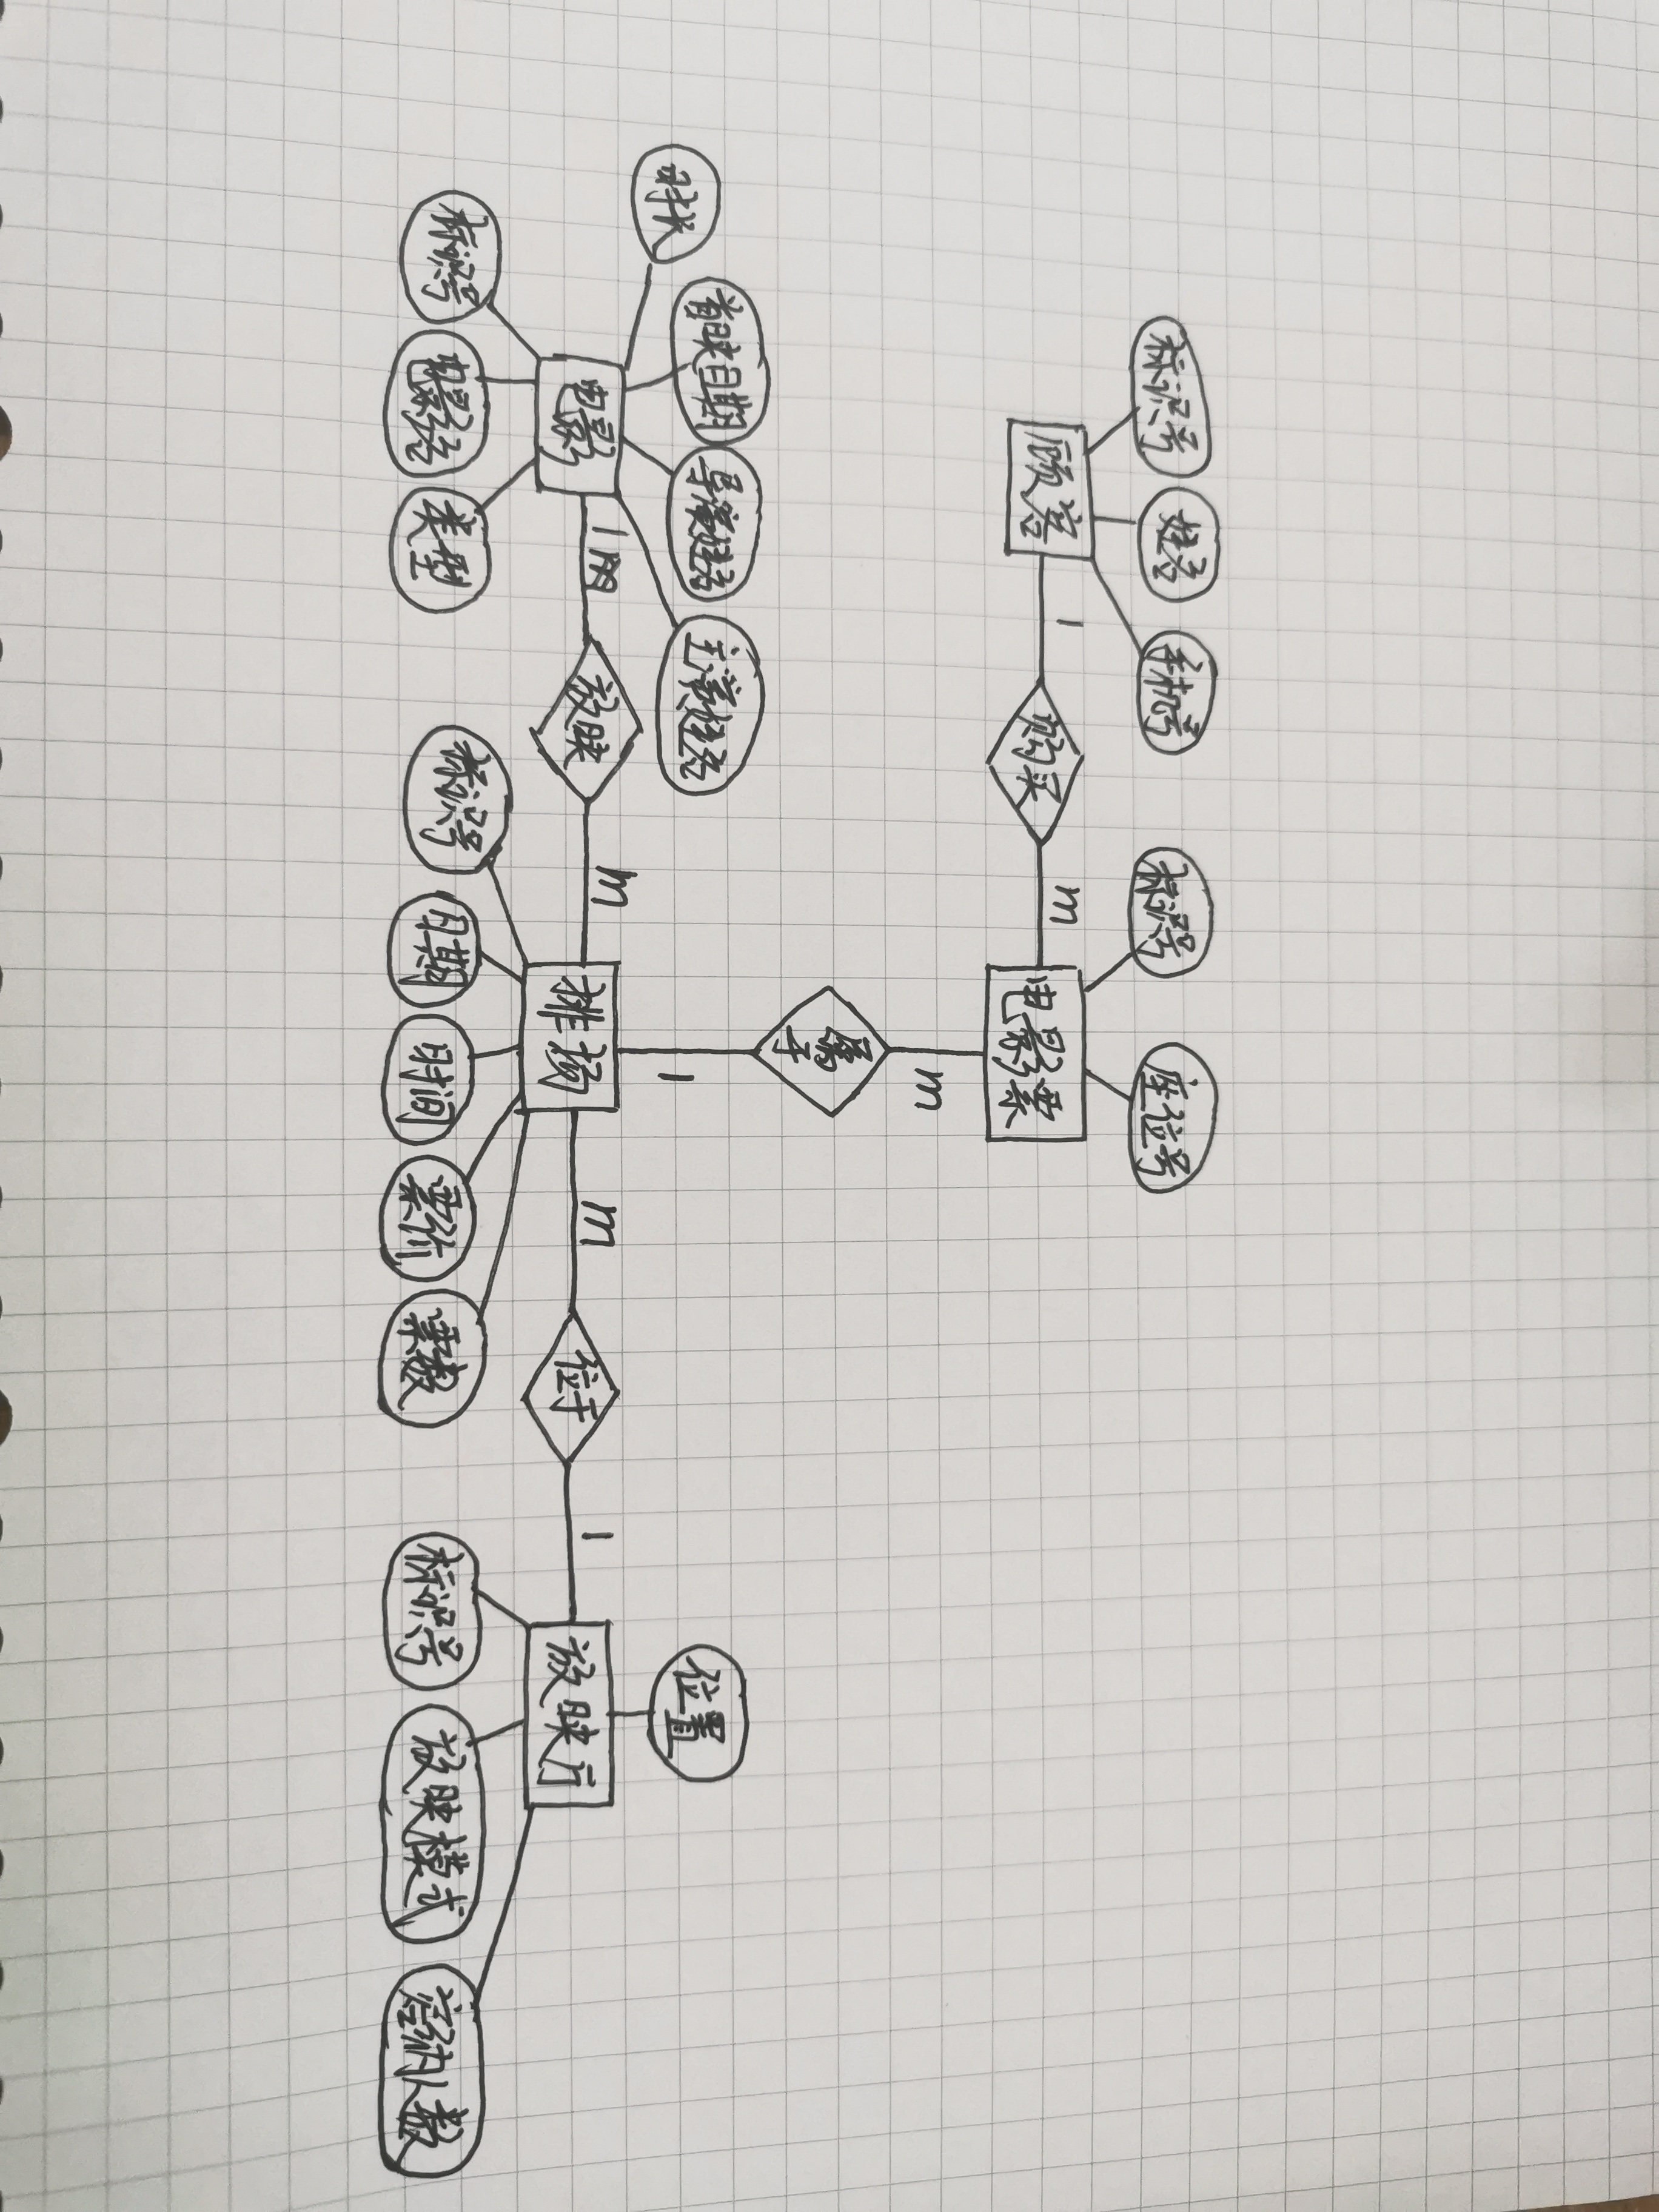 标识号 姓名 手机号 标识号 座位号
顾客 1 购买 m 电影票
m
属于
1
时长 首映日期 导演姓名 主演姓名 位置
电影 1 放映 m 排场 m 位于 1 放映厅
标识号 电影名 类型 标识号 日期 时间 票价 票数 标识号 放映模式 容纳人数